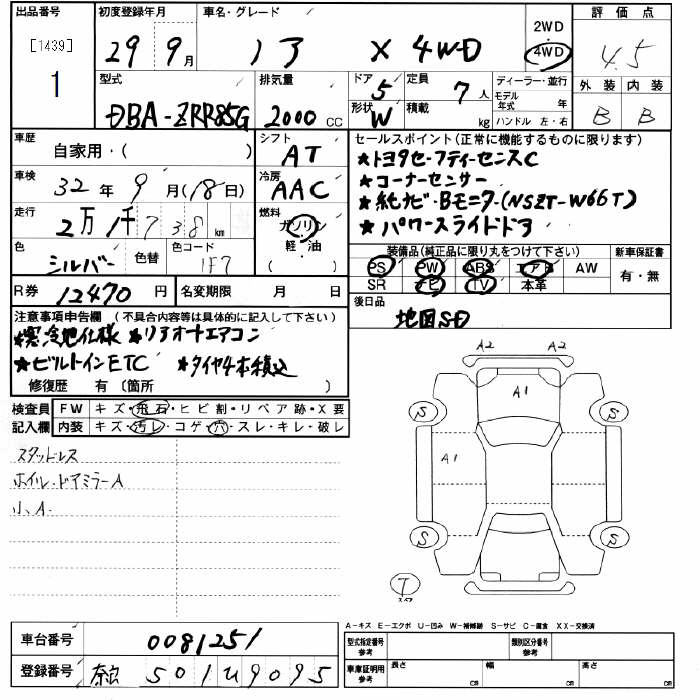 出品番号 初度登録年月 車名・グレード 2WD 評価点
[1439] 29 9月 X 4WD 4WD 4.5
1 型式 排気量 ドア 5 定員 7人 ディーラー・並行 外装 内装
DBA-ZRR85G 2000 CC 形状 W 積載 kg モデル年式 年 B B
ハンドル 左・右
車歴 シフト セールスポイント(正常に機能するものに限ります)
自家用・( ) AT ★トヨタセーフティーセンスC
車検 冷房 ★コーナーセンサー
32年 9月(18日) AAC ★純ナビ・Bモニタ・(NSZT-W66T)
走行 燃料 ★パワースライドドア
2万1千738km ガソリン
色 色替 色コード 軽・油 装備品(純正品に限り丸をつけて下さい) 新車保証書
シルバー 1F7 ( ) PS PW ABS エアB AW 有・無
SR ナビ TV 本革
R券 12470円 名変期限 月 日 後日品
地図SD
注意事項申告欄 (不具合内容等は具体的に記入して下さい)
★寒冷地仕様 ★リアオートエアコン
★ビルトインETC ★タイヤ4本積込
修復歴 有 (箇所 )
検査員 FW キズ・飛石・ヒビ割・リペア跡・X要
記入欄 内装 キズ・汚レ・コゲ・穴・スレ・キレ・破レ
スタッドレス
ホイル・ドアミラーA
小、A.
A2 A2
A1
S S
A1
S S
T
A-キズ E-エクボ U-凹み W-補修跡 S-サビ C-腐食 XX-交換済
車台番号 0081251 型式指定番号 参考 類別区分番号 参考
登録番号 奈良 501 9095 車庫証明用 参考 長さ cm 幅 cm 高さ cm